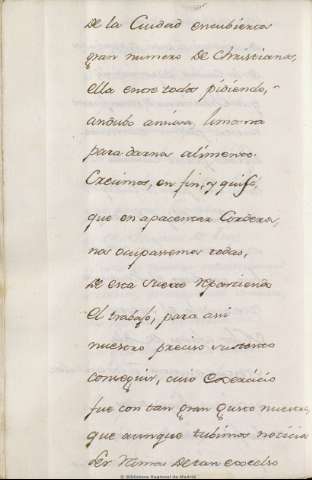 de la Ciudad encubierta
gran numero de Christianos,
ella entre todos pidiendo,
andubo ansiosa limosna
para darnos alimento.
Crecimos, en fin, y quiso,
que en apacentar Corderos,
nos ocupassemos todos,
de esta suerte repartiendo
el trabajo, para assi
nuestro preciso sustento
conseguir, cuio exercicio
fue con tan gran gusto nuestro,
que aunque tubimos noticia
ser Nomos de tan excelso
© Biblioteca Regional de Madrid